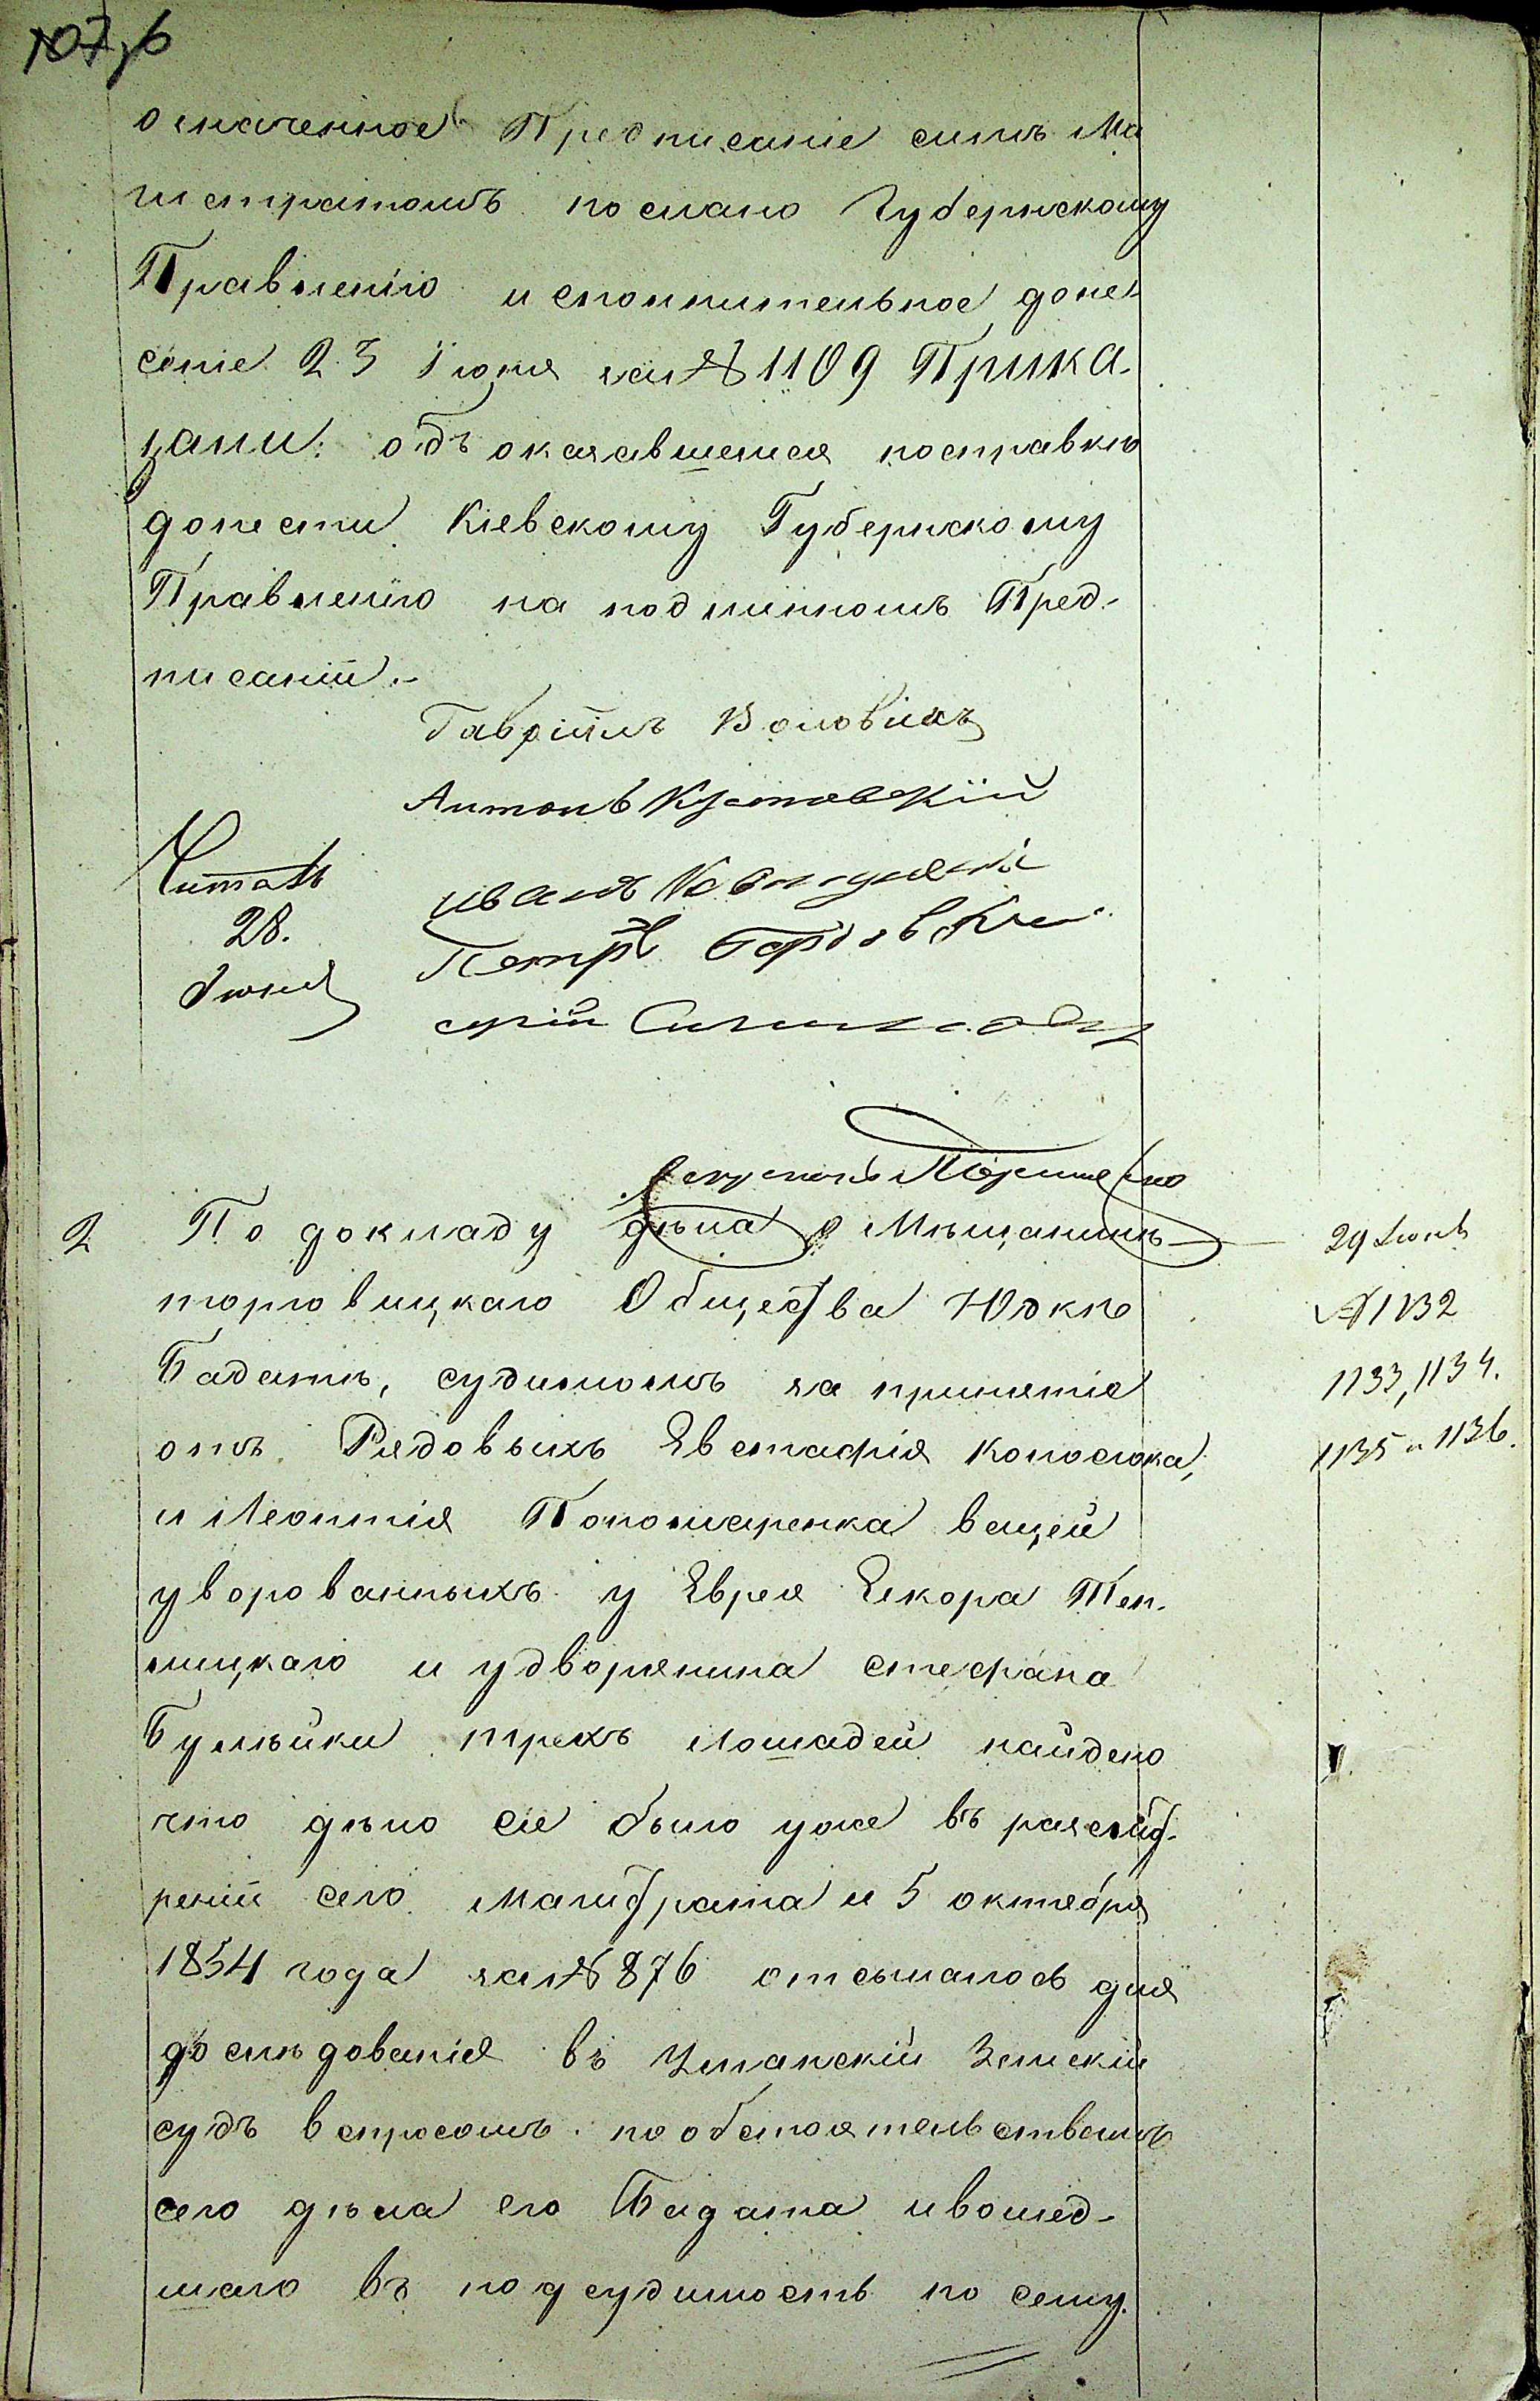 107,б
означенное Предписаніе симъ Ма
гистратомъ послано Губернскому
Правленію исполнительное доне-
сеніе 23 Іюня за № 1109 Прика-
зали: объ оказавшемся посправкѣ
донести Кіевскому Губернскому
Правленію на подлинномъ Пред-
писаніи.-
Гавріилъ
Антонъ
Читалъ
28.
Іюня
иванъ
Петръ
Секретарь
2 По докладу дѣла о Мѣщанинѣ
торговицкаго Общества Юдкѣ
Бадатѣ, судимомъ за принятіе
отъ Рядовыхъ Евстафія Колосюка,
и Леонтія Пономаренка вещей
уворованныхъ у Еврея Шкора Теп-
лицкаго и удворянина стефана
Булѣйки трехъ лошадей найдено
что дѣло сіе было уже въ разсмот-
реніи сего магистрата и 5 октября
1854 года за № 876 отсылалось для
дослѣдованія въ Уманскій Земскій
судъ вспросомъ по обстоятельствамъ
сего дѣла его Бадата ивошед-
шаго въ подсудимость по сему
29 Іюня
№ 1132
1133, 1134.
1135 и 1136.